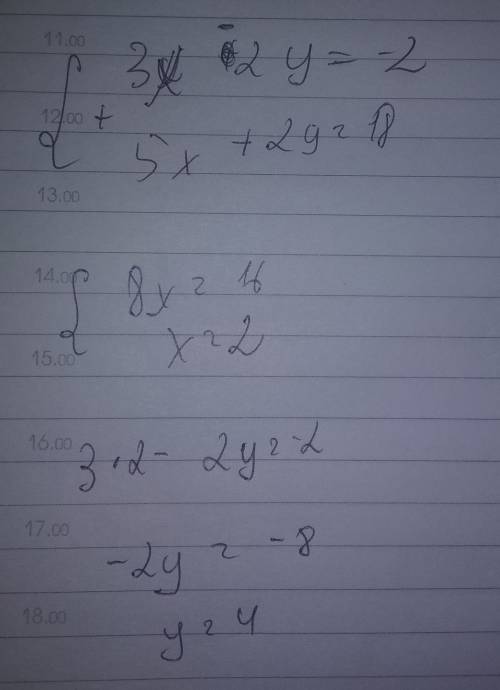 11.00
3x - 2y = -2
12.00 +
5x + 2y = 18
13.00
14.00 8x = 16
x = 2
15.00
16.00
3 · 2 - 2y = -2
17.00
-2y = -8
18.00
y = 4